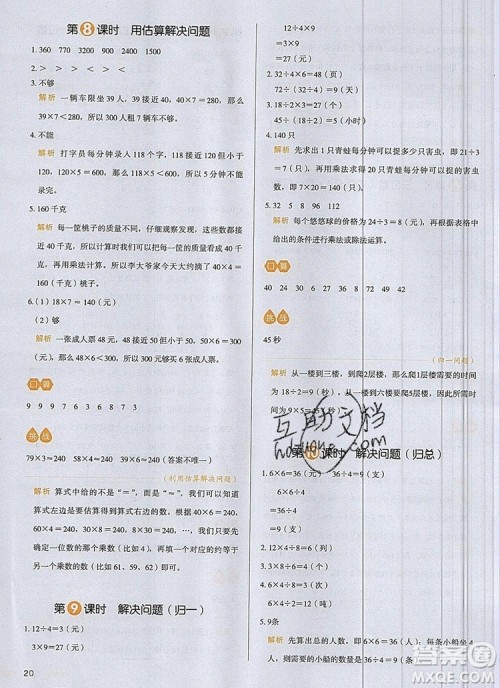 第8课时 用估算解决问题
1. 360 770 3200 900 2400 1500
2. > > > < > >
3. 不够
解析 一辆车限坐39人，39接近40，40×7=280，那么
39×7<280，所以坐不下。
4. 不能
解析 打字员每分钟录入118个字，118个小于120
个，120×5=600（个），那么118×5<600，所以
5分钟不能录入600个字。
5. 160千克
解析 每一筐桃子的质量不同，仔细观察发现，每一
筐都接近40千克，所以把每一筐的质量都看作
40千克，再用乘法计算。所以李大爷家今天大约
共摘了40×4=160（千克）桃子。
6. (1) 18×7=140（元）
(2) 够
解析 一张成人票48元，48×6<300，所以购买6张
成人票，300元够。
口算
9 9 9 7 3 6 8 7 7 3 8
挑战
79×3≈240 58×4≈240（答案不唯一）
（利用估算解决问题）
解析 算式中给的不是“=”，而是“≈”，我们就要想
到算式左边是要去估算得到的算式右边的得数，
而40×6=240，60×4=240，80×3=240，所以可
以填与整十数接近的乘数（比如59、58、62），或
另一个乘数的数（比如61、59、62）。
第9课时 解决问题（归一）
1. 12÷4=3（元）
3×9=27（元）
20
12÷4×9
=3×9
=27（元）
2. 32÷4×6=48（页）
72÷(32÷4)=9（天）
3. 18÷2×3=27（元）
72÷(18÷2)=8（个）
4. 140只
解析 先求出1只青蛙每分钟可以捉多少只害虫，即21÷3
=7（只），再用乘法求20只青蛙每分钟可以捉害虫
的只数，即7×20=140（只）。
5.
解析 每个悠悠球的价格为24÷3=8（元），再根据表格中
给出的条件进行乘法或除法运算。
口算
40 24 30 27 36 12 98 72 49 42
挑战
45秒
（归一问题）
解析 从一楼到三楼，只爬了2层楼，那么爬1层楼所需的时间
为18÷2=9（秒），从一楼到六楼爬5层楼，需要的时
间为9×5=45（秒）。
课时 解决问题（归总）
1. 6×6=36（元） 36÷9=4（元）
6×6÷9
=36÷9
=4（元）
2. 12×4÷8=6（个）
3. 4×6÷3=8（元）
4. 16×3÷6=8（只）
5. 9条
解析 先算出总的人数，即6×6=36（人），每条小船坐4
人，需要租的小船的数量为36÷4=9（条）。
互助文档
MXQE.COM